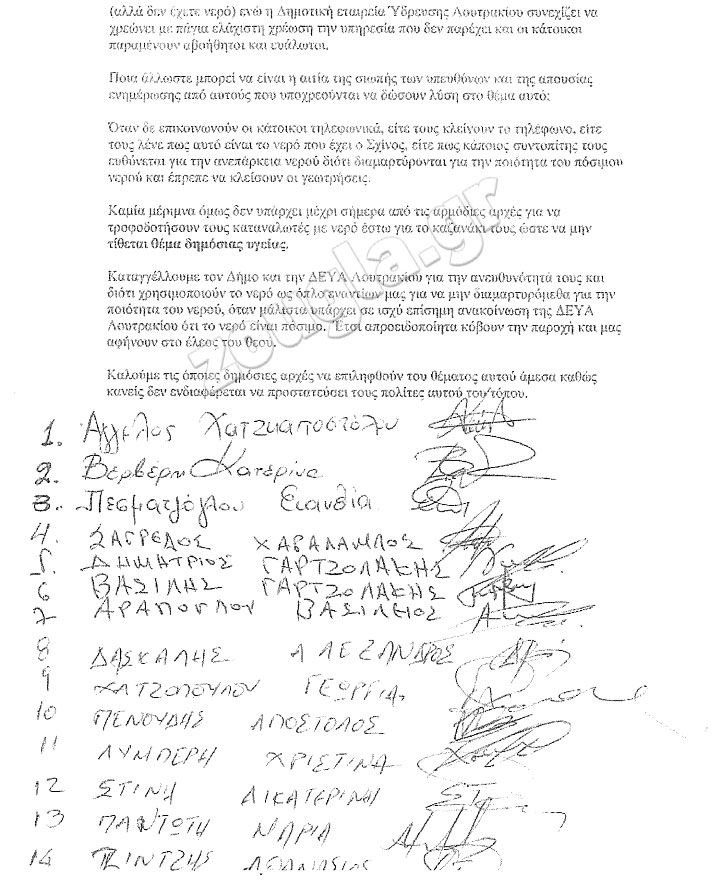 (αλλά δεν έχετε νερό) ενώ η Δημοτική εταιρεία Ύδρευσης Λουτρακίου συνεχίζει να
χρεώνει με πάγια ελάχιστη χρέωση την υπηρεσία που δεν παρέχει και οι κάτοικοι
παραμένουν αβοήθητοι και ευάλωτοι.
Ποια άλλωστε μπορεί να είναι η αιτία της σιωπής των υπευθύνων και της απουσίας
ενημέρωσης από αυτούς που υποχρεούνται να δώσουν λύση στο θέμα αυτό;
Όταν δε επικοινωνούν οι κάτοικοι τηλεφωνικά, είτε τους κλείνουν το τηλέφωνο, είτε
τους λένε πως αυτό είναι το νερό που έχει ο Σχίνος, είτε πως κάποιος συντοπίτης τους
ευθύνεται για την ανεπάρκεια νερού διότι διαμαρτύρονται για την ποιότητα του πόσιμου
νερού και έπρεπε να κλείσουν οι γεωτρήσεις.
Καμία μέριμνα όμως δεν υπάρχει μέχρι σήμερα από τις αρμόδιες αρχές για να
τροφοδοτήσουν τους καταναλωτές με νερό έστω για το καζανάκι τους ώστε να μην
τίθεται θέμα δημόσιας υγείας.
Καταγγέλλουμε τον Δήμο και την ΔΕΥΑ Λουτρακίου για την ανευθυνότητά τους και
διότι χρησιμοποιούν το νερό ως όπλο εναντίων μας για να μην διαμαρτυρόμεθα για την
ποιότητα του νερού, όταν μάλιστα υπάρχει σε ισχύ επίσημη ανακοίνωση της ΔΕΥΑ
Λουτρακίου ότι το νερό είναι πόσιμο. Έτσι απροειδοποίητα κόβουν την παροχή και μας
αφήνουν στο έλεος του θεού.
Καλούμε τις όποιες δημόσιες αρχές να επιληφθούν του θέματος αυτού άμεσα καθώς
κανείς δεν ενδιαφέρεται να προστατεύσει τους πολίτες αυτού του τόπου.
zougla.gr
1. Άγγελος Χατζηαποστόλου
2. Βερβέρη Κατερίνα
3. Πεσματζόγλου Ευανθία
4. ΣΑΓΡΕΔΟΣ ΧΑΡΑΛΑΜΠΟΣ
5. ΔΗΜΗΤΡΙΟΣ ΓΑΡΤΖΟΛΑΚΗΣ
6 ΒΑΣΙΛΗΣ ΓΑΡΤΖΟΛΑΚΗΣ
7 ΑΡΑΠΟΓΛΟΥ ΒΑΣΙΛΕΙΟΣ
8 ΔΑΣΚΑΛΗΣ ΑΛΕΞΑΝΔΡΟΣ
9 ΧΑΤΖΟΠΟΥΛΟΥ ΓΕΩΡΓΙΑ
10 ΠΕΝΟΥΔΗΣ ΑΠΟΣΤΟΛΟΣ
11 ΛΥΜΠΕΡΗ ΧΡΙΣΤΙΝΑ
12 ΣΤΙΝΗ ΑΙΚΑΤΕΡΙΝΗ
13 ΠΑΝΤΩΤΗ ΜΑΡΙΑ
14 ΑΘΑΝΑΣΙΟΣ